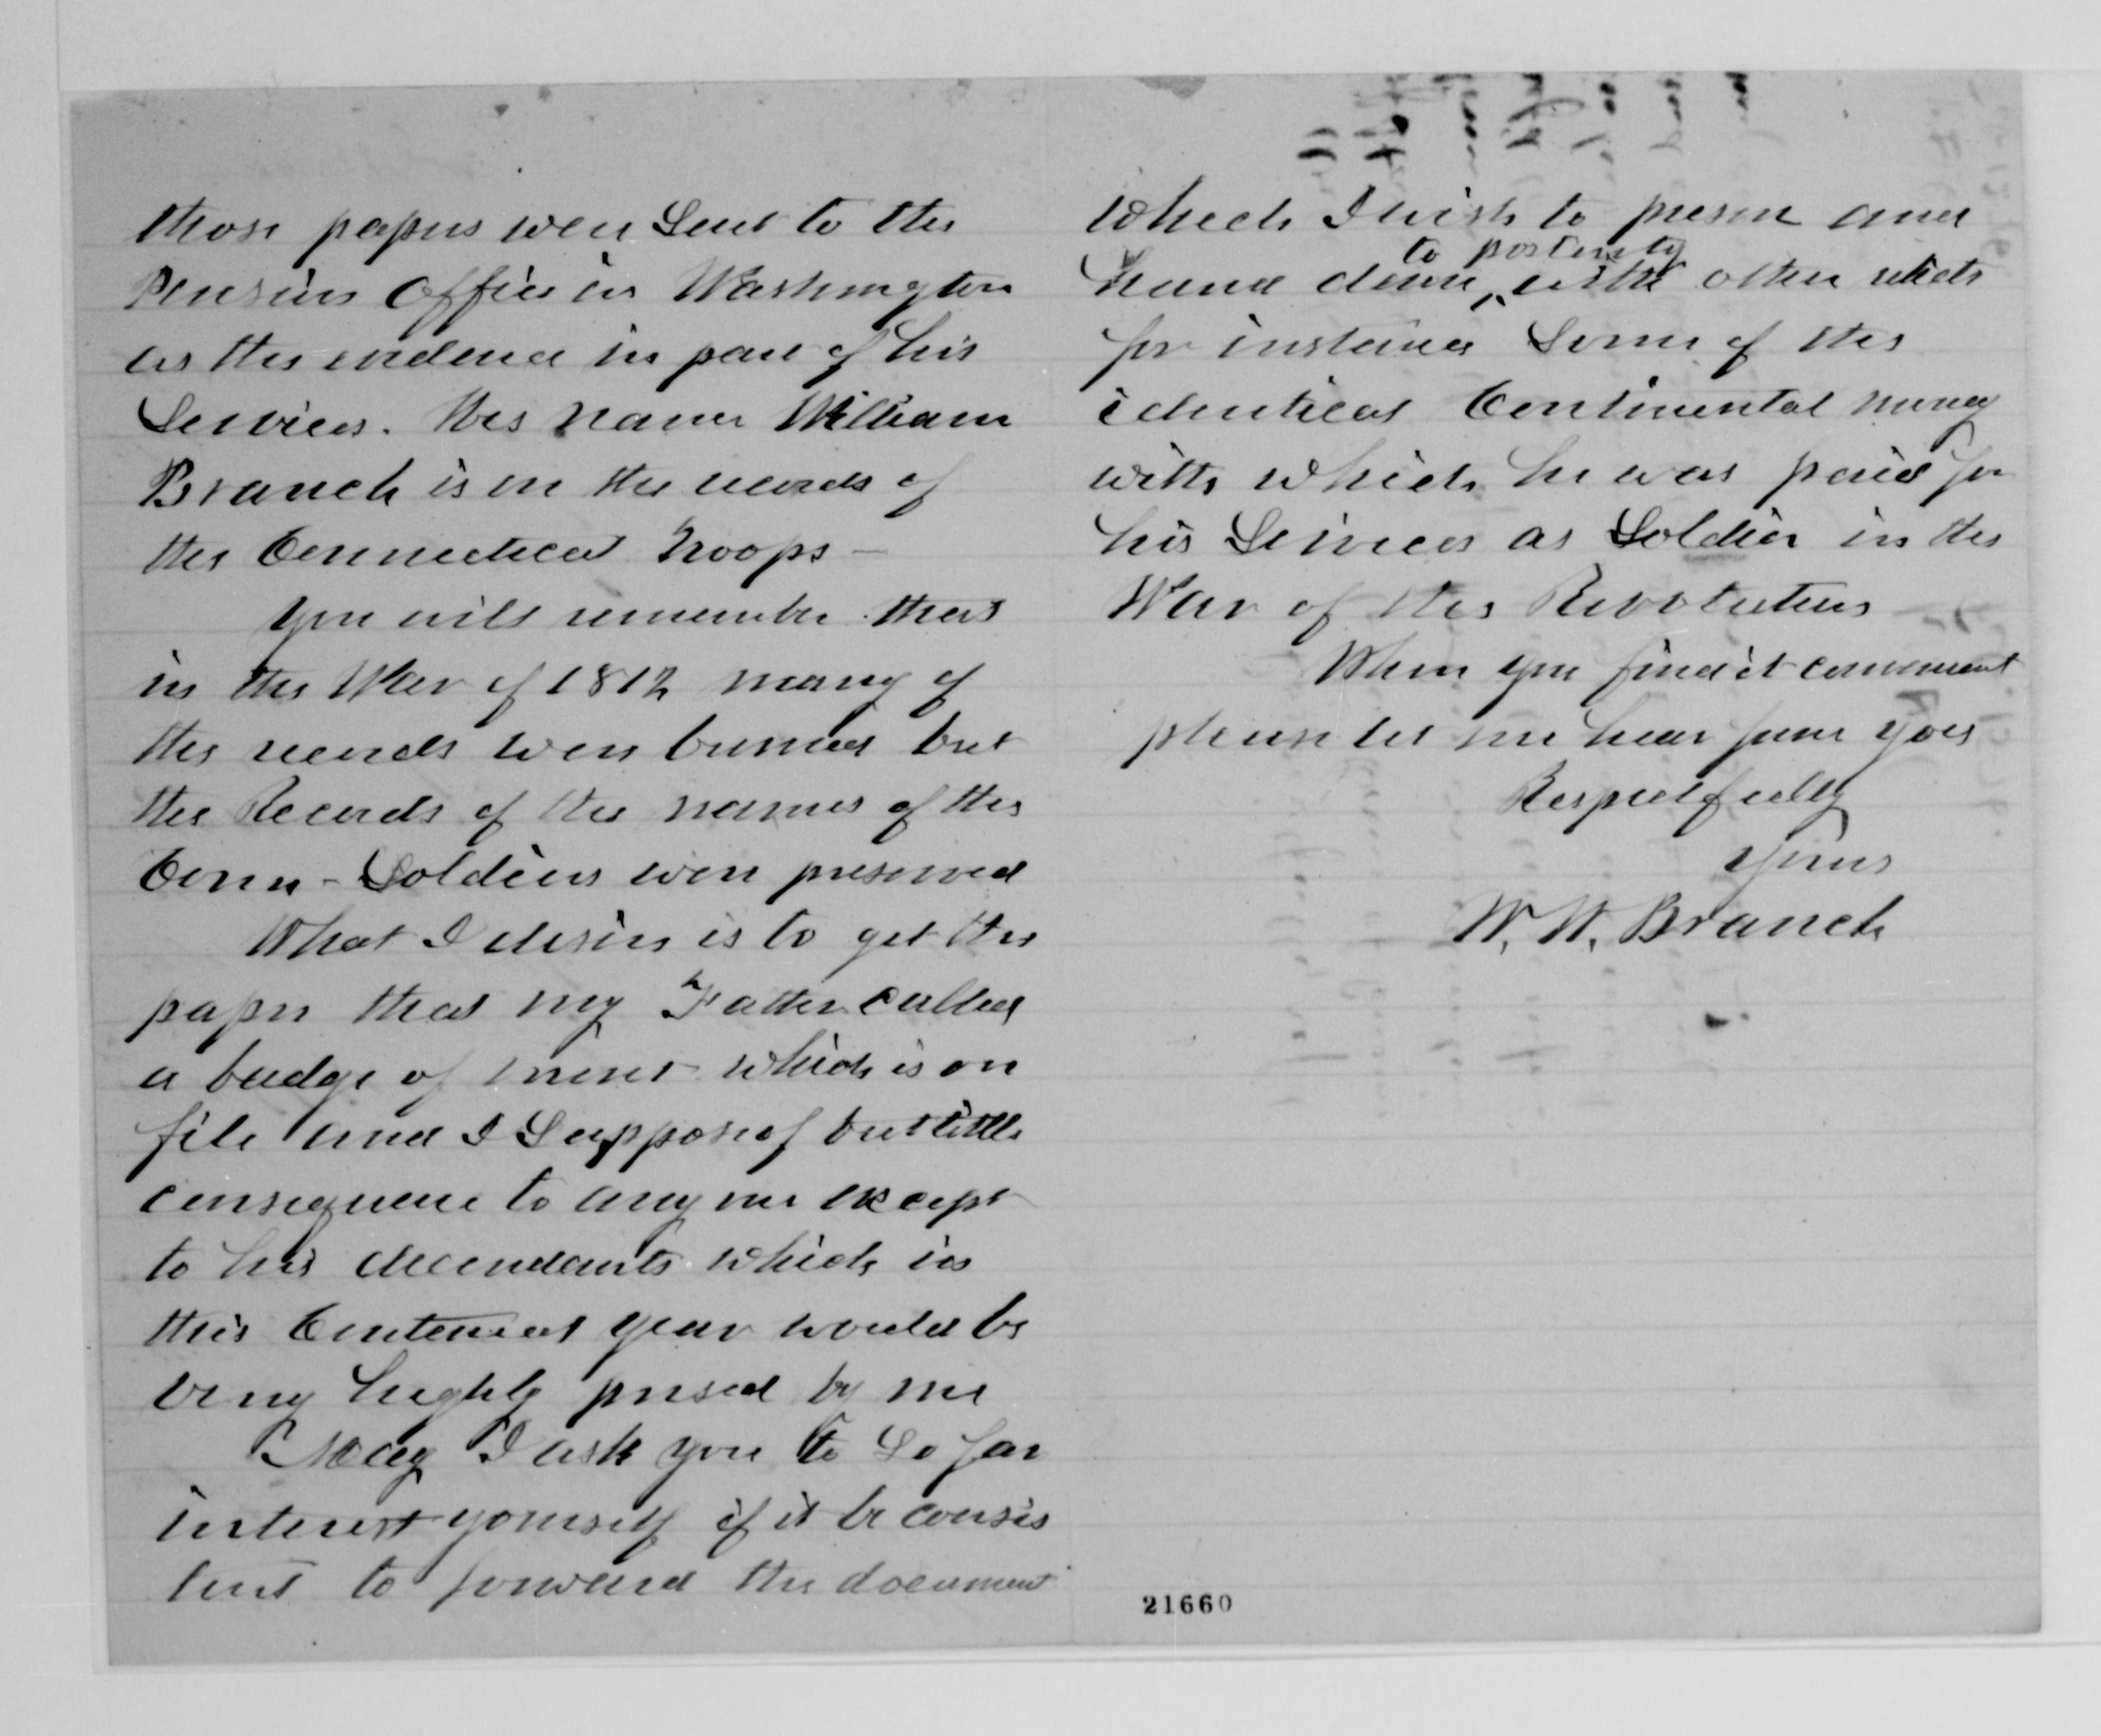 those papers were Sent to the
Pension Office in Washington
as the evidence in part of his
Services. His name William
Branch is on the records of
the Connecticut Troops —
You will remember that
in the War of 1812 many of
the records were burned but
the Records of the names of the
Conn - Soldiers were preserved
What I desire is to get the
paper that my Father called
a badge of merit which is on
file and I Suppose of but little
consequence to any one except
to his decendants which in
this Centenial year would be
very highly prised by me
May I ask you to So far
interest yourself if it be consis
tent to forward the document
which I wish to preserve and
to posterity
hand down, with other relicts
for instance Some of the
identical Continental money
with which he was paid for
his Services as Soldier in the
War of the Revolution
When you find it convenient
please let me hear from you
Respectfully
Yours
W. W. Branch
21660